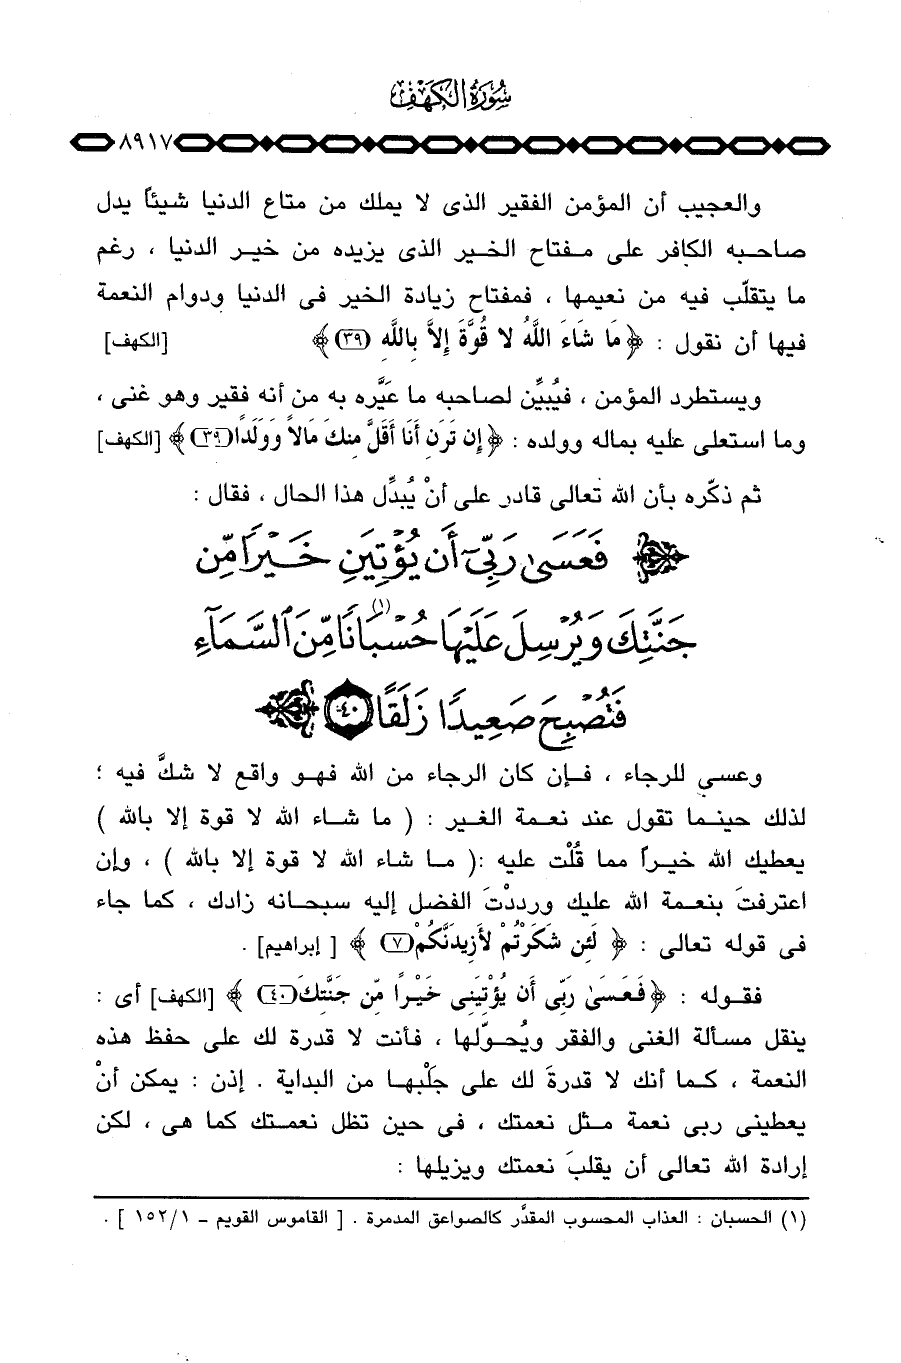 سُورَةُ الكَهْفِ
٨٩١٧
والعجيب أن المؤمن الفقير الذى لا يملك من متاع الدنيا شيئاً يدل
صاحبه الكافر على مفتاح الخير الذى يزيده من خير الدنيا ، رغم
ما يتقلَّب فيه من نعيمها ، فمفتاح زيادة الخير فى الدنيا ودوام النعمة
فيها أن نقول : ﴿ مَا شَاءَ اللَّهُ لا قُوَّةَ إِلاَّ بِاللَّهِ (٣٩) ﴾ [الكهف]
ويستطرد المؤمن ، فيُبيِّن لصاحبه ما عَيَّره به من أنه فقير وهو غنى ،
وما استعلى عليه بماله وولده : ﴿ إِن تَرَنِ أَنَا أَقَلَّ مِنكَ مَالاً وَوَلَدًا (٣٩) ﴾ [الكهف]
ثم ذكَّره بأن الله تعالى قادر على أنْ يُبدِّل هذا الحال ، فقال :
﴿ فَعَسَىٰ رَبِّىٓ أَن يُؤْتِيَنِ خَيْرًا مِّن
جَنَّتِكَ وَيُرْسِلَ عَلَيْهَا حُسْبَانًا (١) مِّنَ ٱلسَّمَآءِ
فَتُصْبِحَ صَعِيدًا زَلَقًا ٤٠ ﴾
وعسى للرجاء ، فإن كان الرجاء من الله فهو واقع لا شكَّ فيه ؛
لذلك حينما تقول عند نعمة الغير : ( ما شاء الله لا قوة إلا بالله )
يعطيك الله خيراً مما قُلْت عليه :( ما شاء الله لا قوة إلا بالله ) ، وإن
اعترفتَ بنعمة الله عليك ورددْتَ الفضل إليه سبحانه زادك ، كما جاء
فى قوله تعالى : ﴿ لَئِن شَكَرْتُمْ لأَزِيدَنَّكُمْ (٧) ﴾ [ إبراهيم] .
فقوله : ﴿ فَعَسَىٰ رَبِّى أَن يُؤْتِيَنِى خَيْراً مِّن جَنَّتِكَ (٤٠) ﴾ [الكهف] أى :
ينقل مسألة الغنى والفقر ويُحوِّلها ، فأنت لا قدرة لك على حفظ هذه
النعمة ، كما أنك لا قدرةَ لك على جَلْبها من البداية . إذن : يمكن أنْ
يعطينى ربى نعمة مثل نعمتك ، فى حين تظل نعمتك كما هى ، لكن
إرادة الله تعالى أن يقلبَ نعمتك ويزيلها :
(١) الحسبان : العذاب المحسوب المقدَّر كالصواعق المدمرة . [ القاموس القويم - ١٥٢/١ ] .